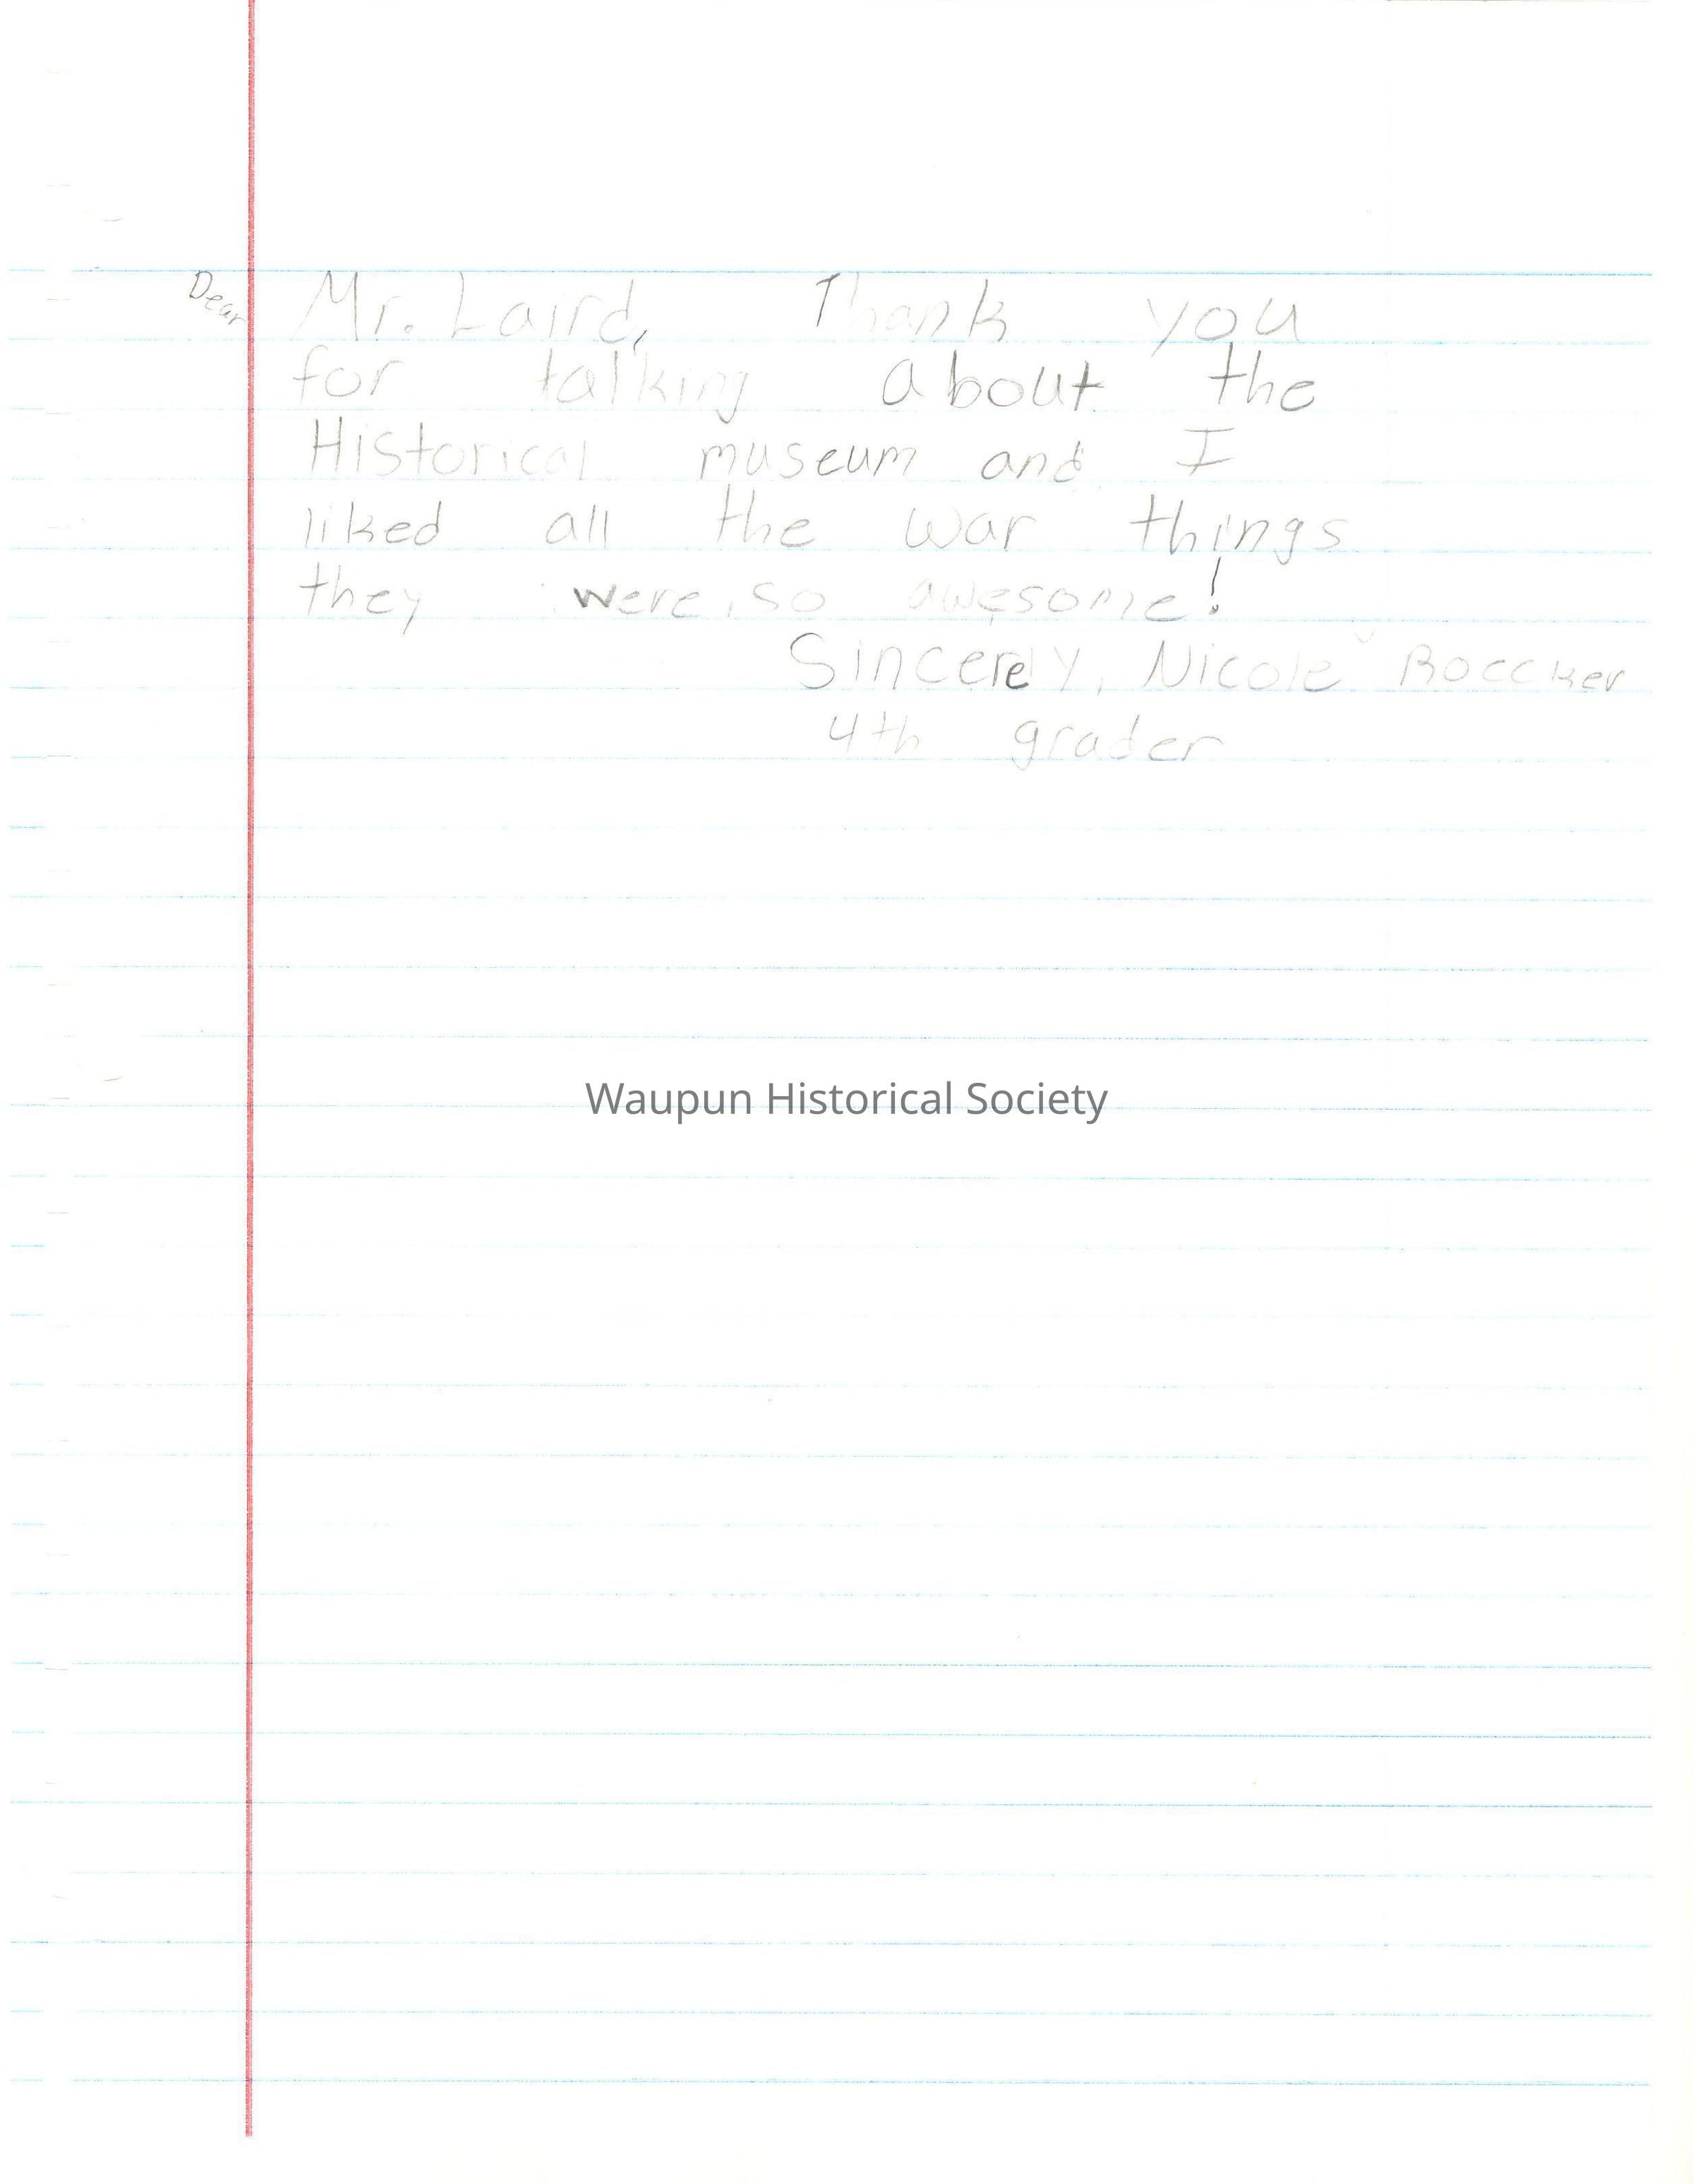 Dear Mr. Laird, Thank you
for talking about the
Historical museum and I
liked all the war things
they were so awesome!
Sincerely, Nicole Boecker
4th grader
Waupun Historical Society